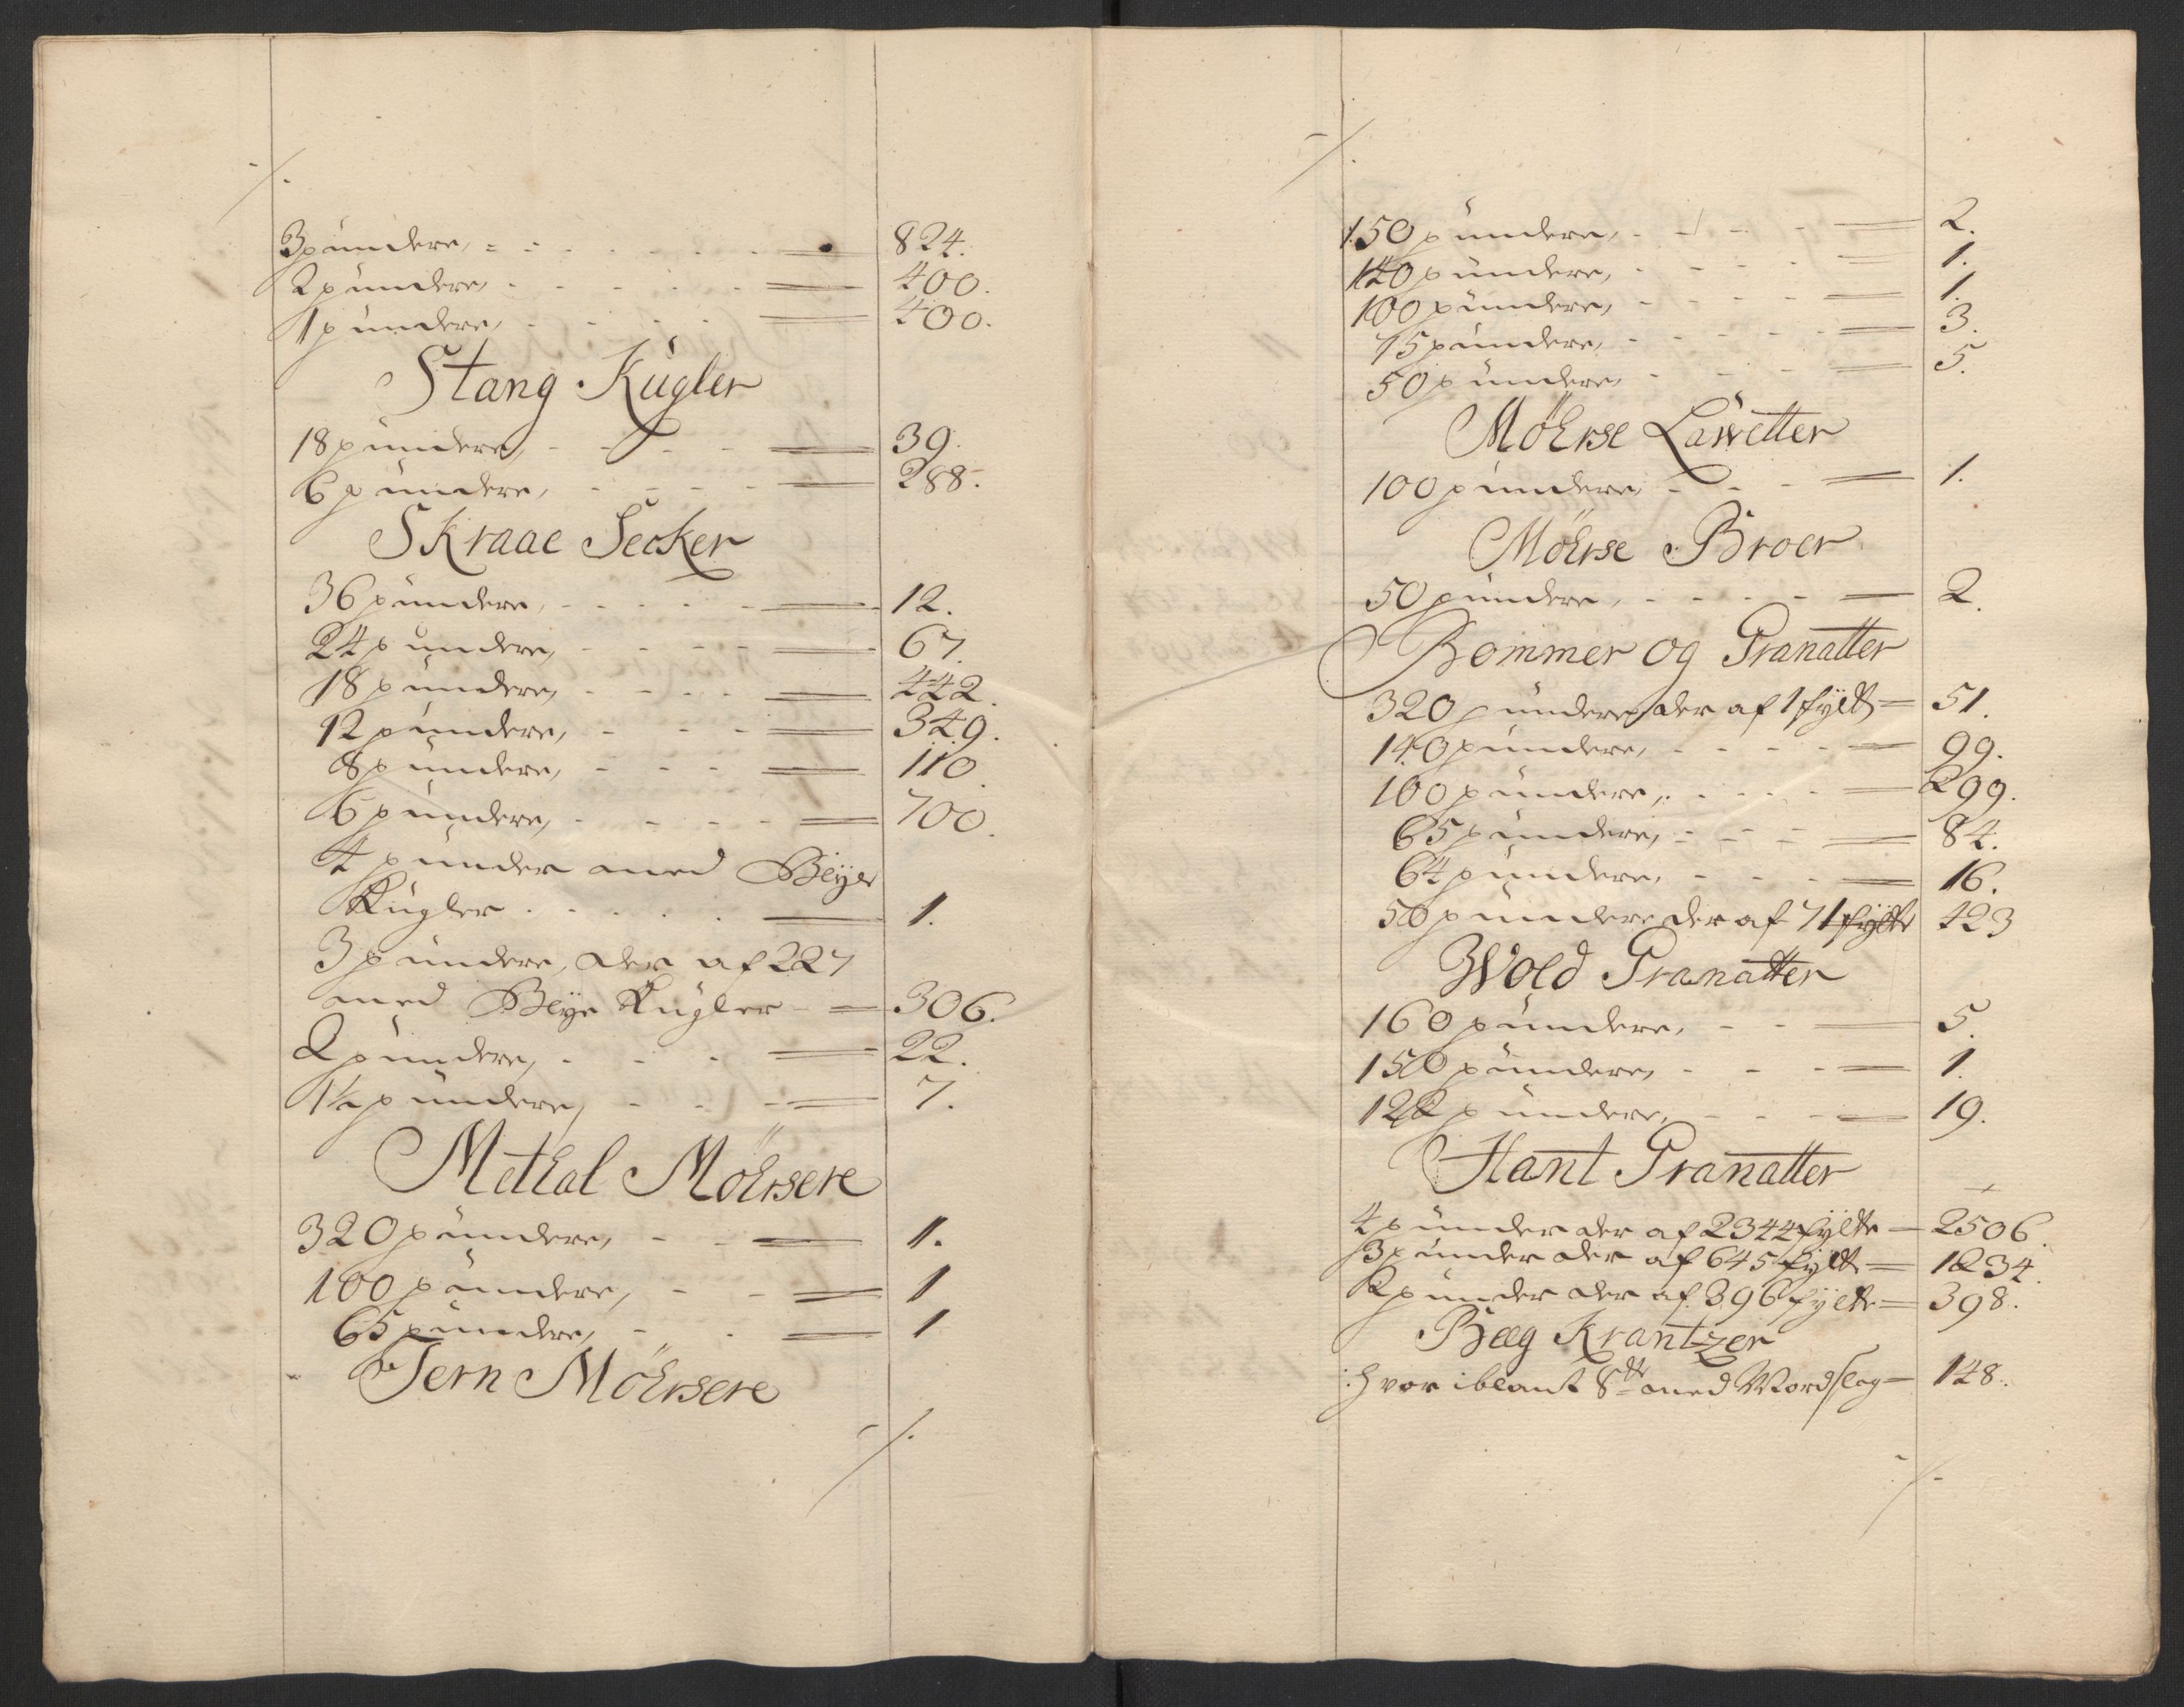 3pündere, 824.
2pündere, 400.
1pündere, 400.
Stang Kugler
18pündere, 39.
6pündere, 288.
Skraae Secker
36pündere, 12.
24pündere, 67.
18pündere, 442.
12pündere, 349.
8pündere, 110.
6pündere, 700.
4pünder med Blÿe
Kugler 1.
3pündere, der af 227
med Blÿe Kugler 306.
2pündere, 22.
1½pündere, 7.
Metkal Möersere
320pündere, 1.
100pündere, 1
65pündere, 1
Jern Möersere
./.
./.
150pündere, 2.
140pündere, 1.
100pündere, 1.
75pündere, 3.
50pündere, 5.
Möerse Lawetter
100pündere, 1.
Möerse Broer
50pündere, 2.
Bommer og Granatter
320pündere, der af 1 fÿldt 51.
140pündere, 99.
100pündere, 299.
65pündere, 84.
64pündere, 16.
50pündere der af 71 fÿldte 423
Wold Granatter
160pündere, 5.
150pündere, 1.
122pündere, 19.
Hant Granatter
4pünder der af 2344 fÿlte 2506.
3pünder der af 645 fÿlte 1234.
2pünder der af 396 fÿlte 398.
Bæg Krantzer
hvor iblant 8 med Mordslag 148.
./.